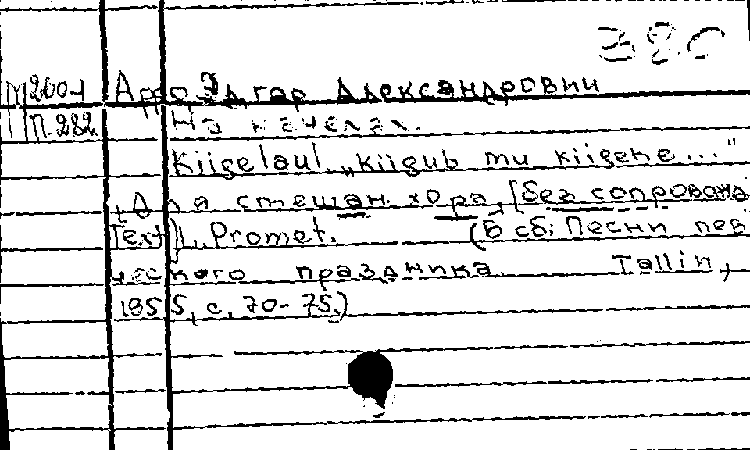 380
М 2004 Арро Эдгар Александрович
П.282 На качелях.
Kiigelaul „Kiigub mu kiigene..."
[Для смешан. хора, [без сопровожд
Text] „Promet. (В сб: Песни пев
ческого праздника Tallin,
1955, с. 70-75.)